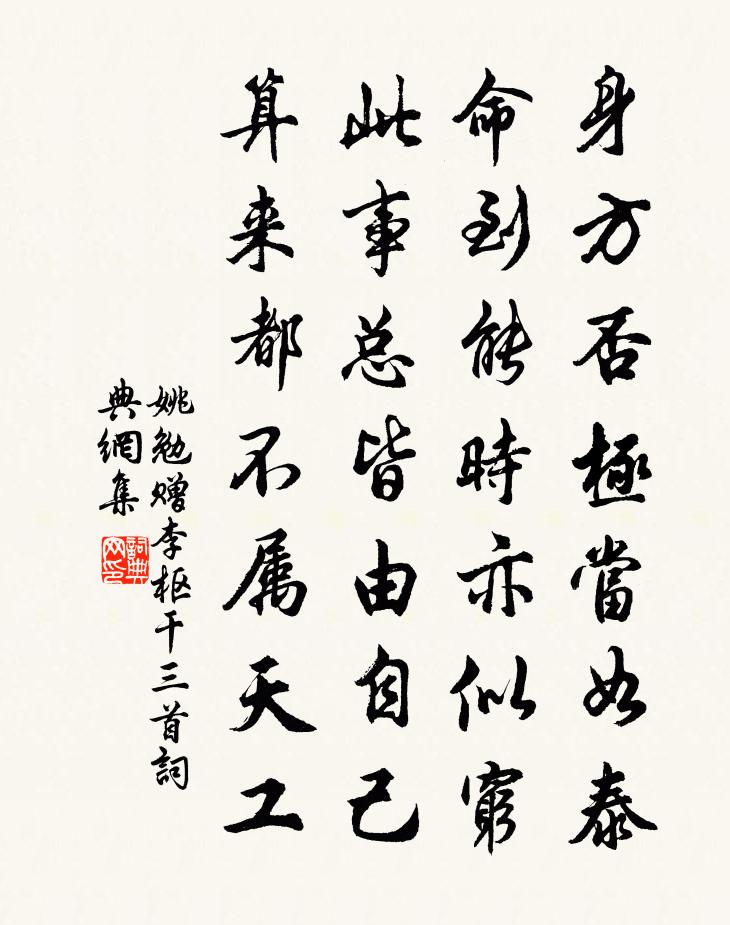 身方否極當如泰
命到能時亦似窮
此事总皆由自己
算来都不属天工
姚勉赠李枢干三首詞
典網集
詞典
网印